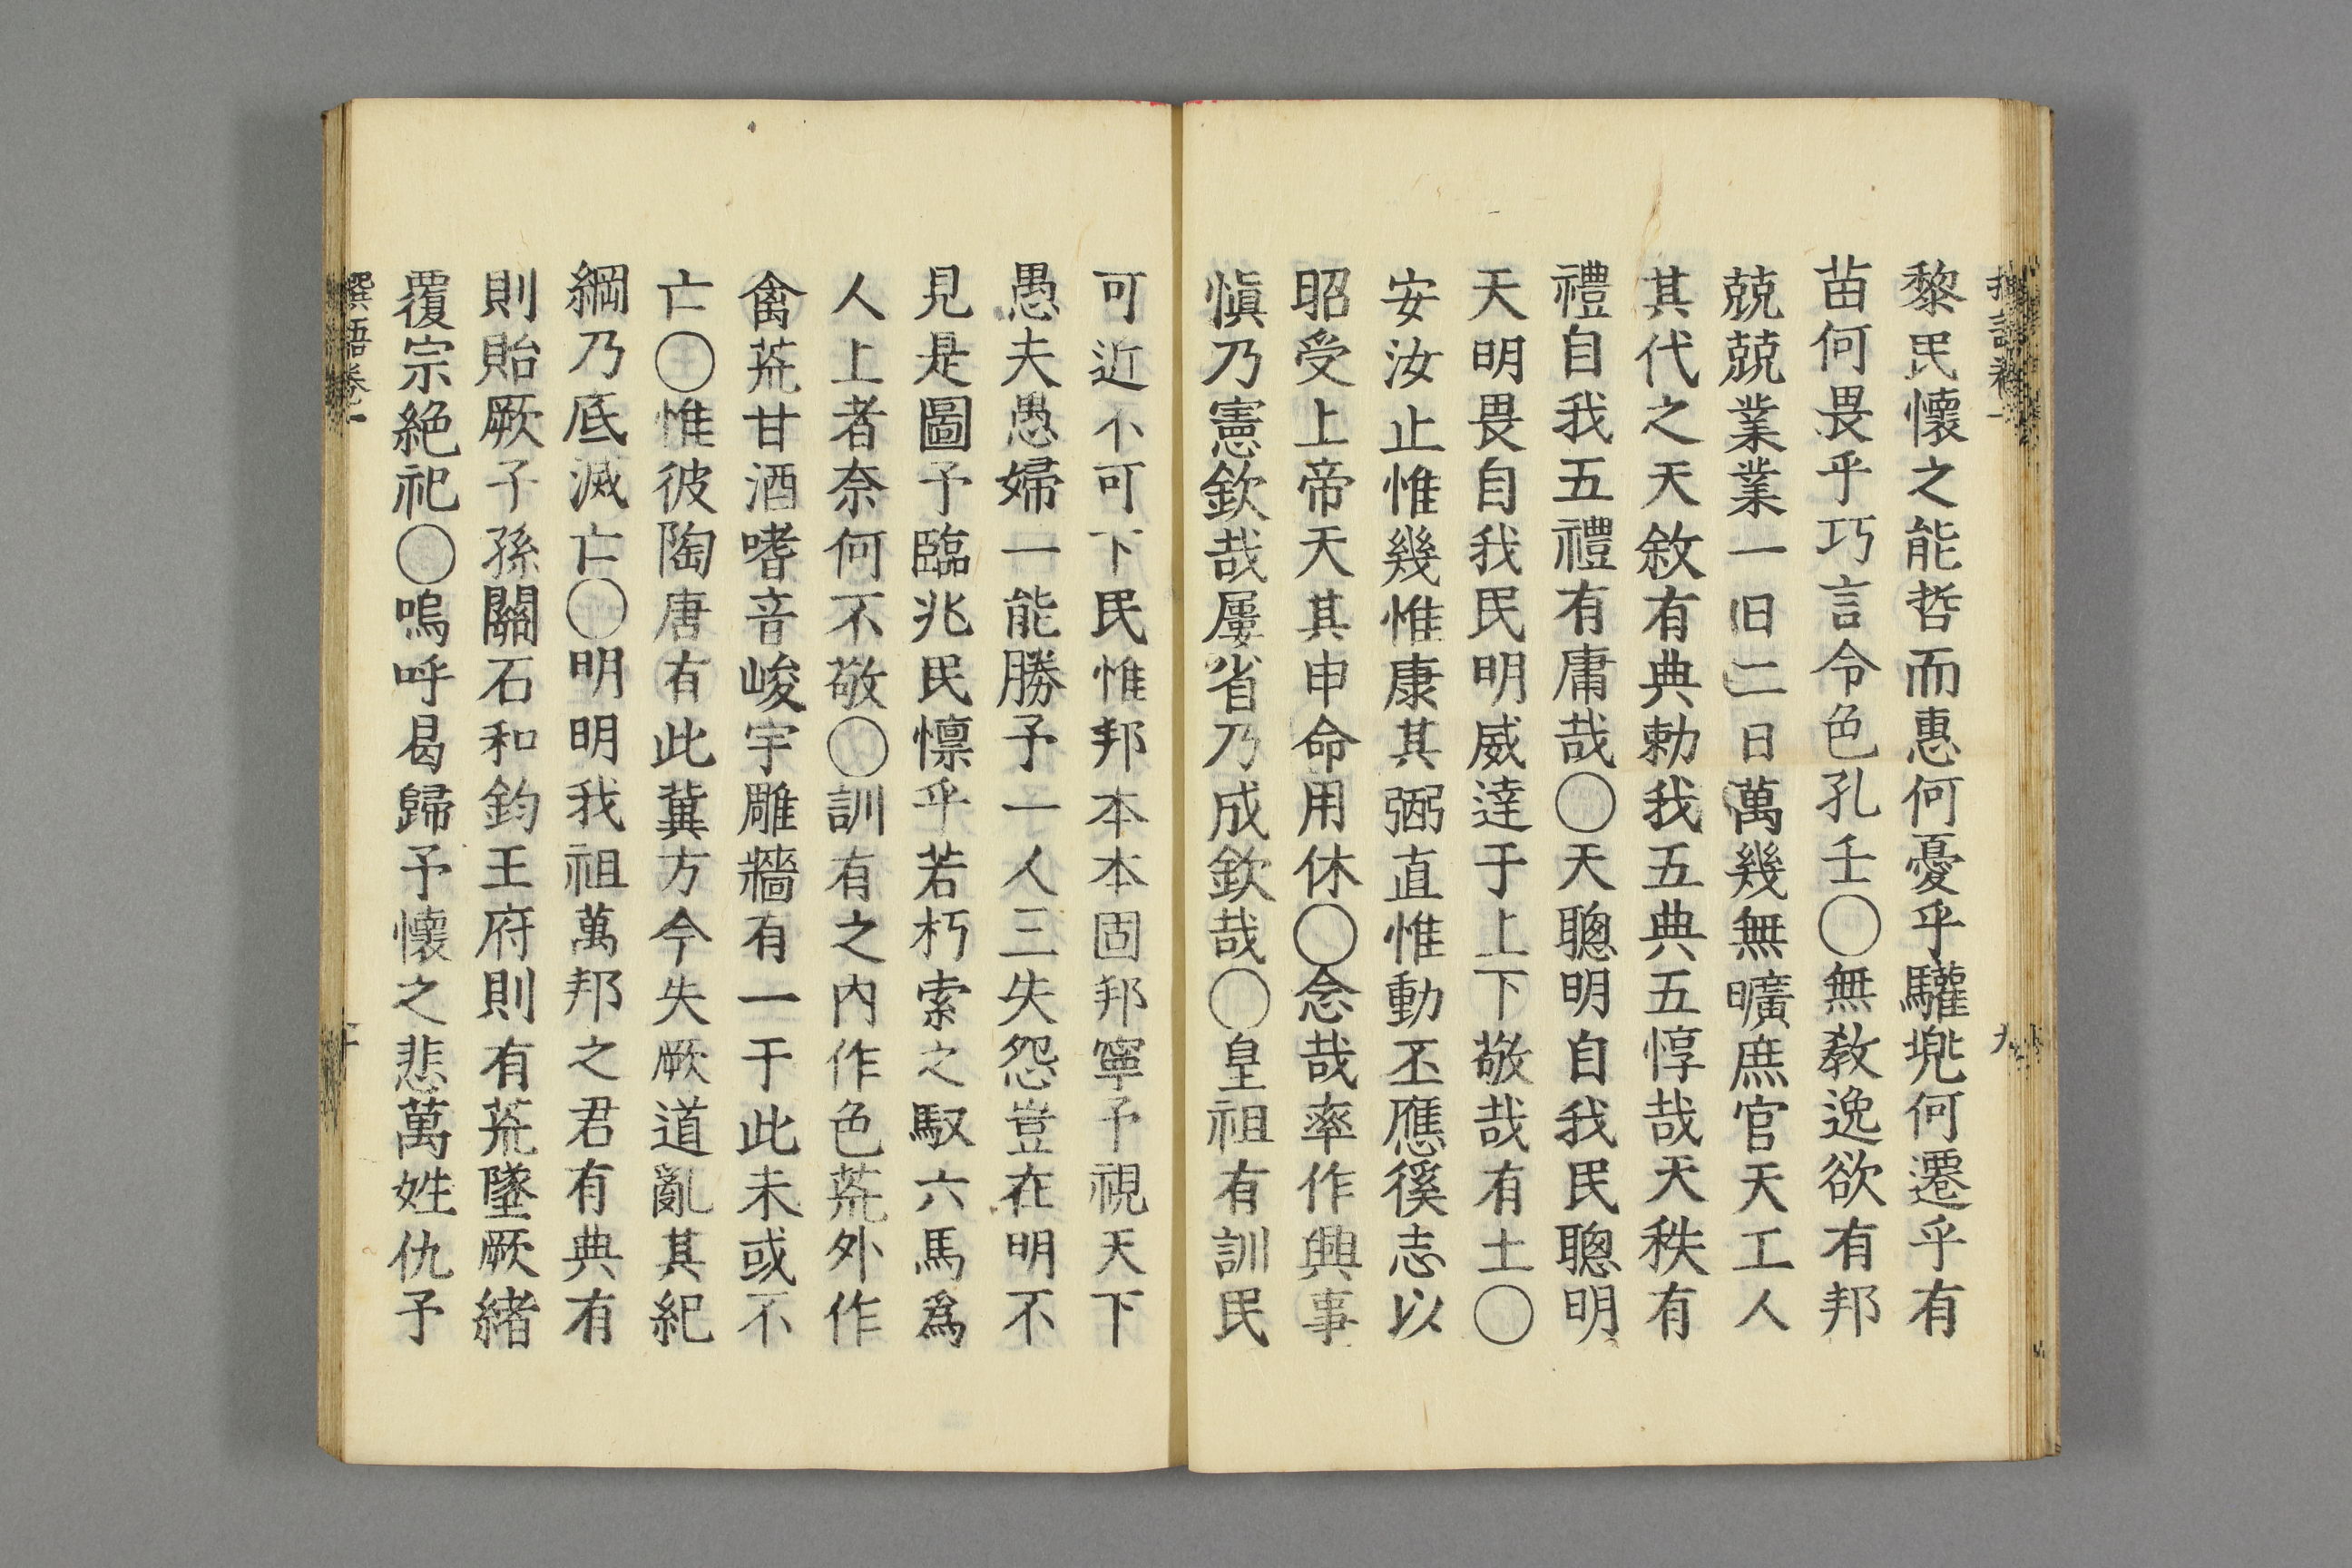 黎民懷之能哲而惠何憂乎驩兜何遷乎有
苗何畏乎巧言令色孔壬〇無敎逸欲有邦
兢兢業業一日二日萬幾無曠庶官天工人
其代之天敘有典勅我五典五惇哉天秩有
禮自我五禮有庸哉〇天聰明自我民聰明
天明畏自我民明威達于上下敬哉有土〇
安汝止惟幾惟康其弼直惟動丕應徯志以
昭受上帝天其申命用休〇念哉率作興事
愼乃憲欽哉屢省乃成欽哉〇皇祖有訓民
可近不可下民惟邦本本固邦寧予視天下
愚夫愚婦一能勝予一人三失怨豈在明不
見是圖予臨兆民懍乎若朽索之馭六馬爲
人上者奈何不敬〇訓有之内作色荒外作
禽荒甘酒嗜音峻宇雕牆有一于此未或不
亡〇惟彼陶唐有此冀方今失厥道亂其紀
綱乃底滅亡〇明明我祖萬邦之君有典有
則貽厥子孫關石和鈞王府則有荒墜厥緖
覆宗絶祀〇嗚呼曷歸予懷之悲萬姓仇予